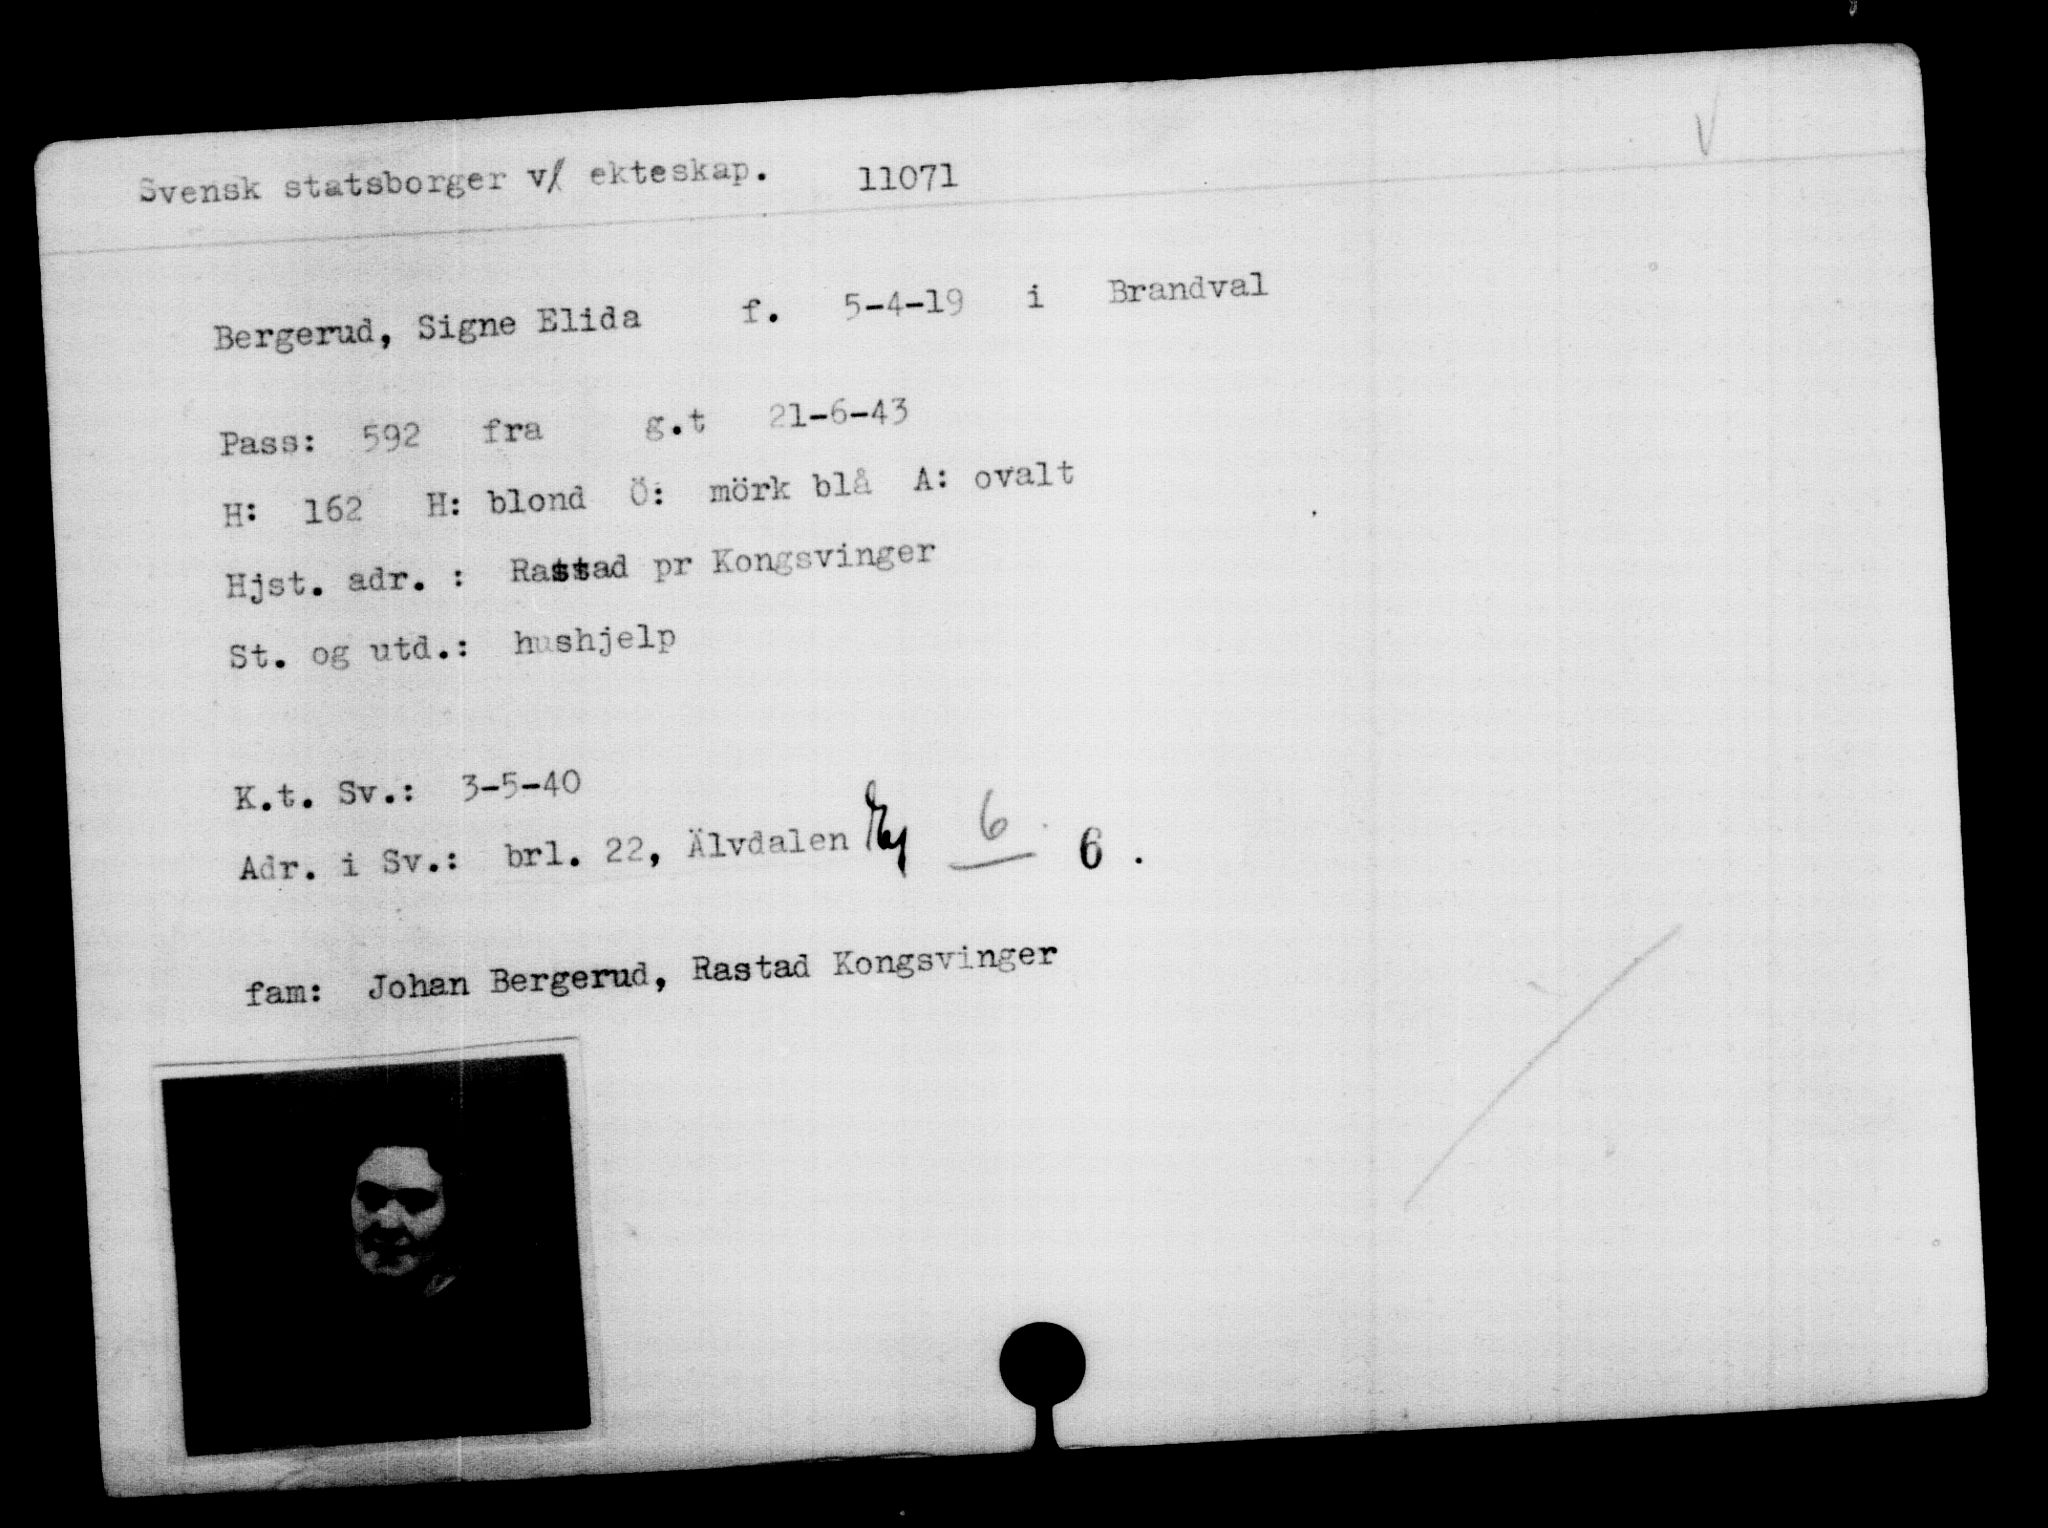 Svensk statsborger v/ ekteskap. 11071
Bergerud, Signe Elida f. 5-4-19 i Brandval
Pass: 592 fra g.t 21-6-43
H: 162 H: blond Ö: mörk blå A: ovalt
Hjst. adr. : Rastad pr Kongsvinger
St. og utd.: hushjelp
K.t. Sv.: 3-5-40
Adr. i Sv.: brl. 22, Älvdalen 6 6 .
fam: Johan Bergerud, Rastad Kongsvinger